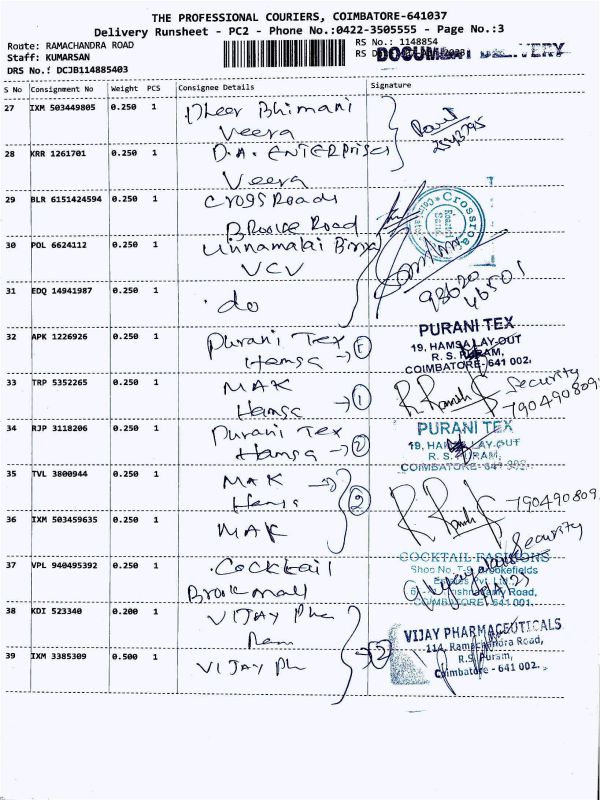 THE PROFESSIONAL COURIERS, COIMBATORE-641037
Delivery Runsheet - PC2 - Phone No.:0422-3505555 - Page No.:3
Route: RAMACHANDRA ROAD
RS No.: 1148854
Staff: KUMARSAN
RS D
DOCUMENT DELIVERY
DRS No.: DCJB114885403
S No Consignment No Weight PCS Consignee Details Signature
27 IXM 503449805 0.250 1 Dheer Bhimani
Veera
28 KRR 1261701 0.250 1 D.A. ENTERPrises
Veera
29 BLR 6151424594 0.250 1 Cross Roads
Brooke Road
Crossroa
30 POL 6624112 0.250 1 Unnamalai
VCV
98620
46501
31 EDQ 14941987 0.250 1 do
32 APK 1226926 0.250 1 Purani Tex
Hamsa → 1
PURANI TEX
19, HAMSA LAY-OUT
R. S. PURAM,
COIMBATORE- 641 002.
33 TRP 5352265 0.250 1 MAK
Hamsa → 1
R. Ramesh Security
790490809
34 RJP 3118206 0.250 1 Purani Tex
Hamsa → 2
PURANI TEX
19, HAMSA LAY-OUT
R. S. PURAM,
COIMBATORE- 641 002.
35 TVL 3800944 0.250 1 MAK
Hamsa
2
R. Ramesh 790490809
Security
36 IXM 503459635 0.250 1 MAK
37 VPL 940495392 0.250 1 Cocktail
Brookmall
COCKTAIL FASHIONS
Shop No. T-9, Brookefields
Estates Pvt. Ltd.,
Krishnasamy Road,
COIMBATORE- 641 001.
38 KDI 523340 0.200 1 VIJAY Pha
Ram
39 IXM 3385309 0.500 1 VIJAY Ph
→ 2
VIJAY PHARMACEUTICALS
114, Ramachandra Road,
R.S. Puram,
Coimbatore - 641 002.